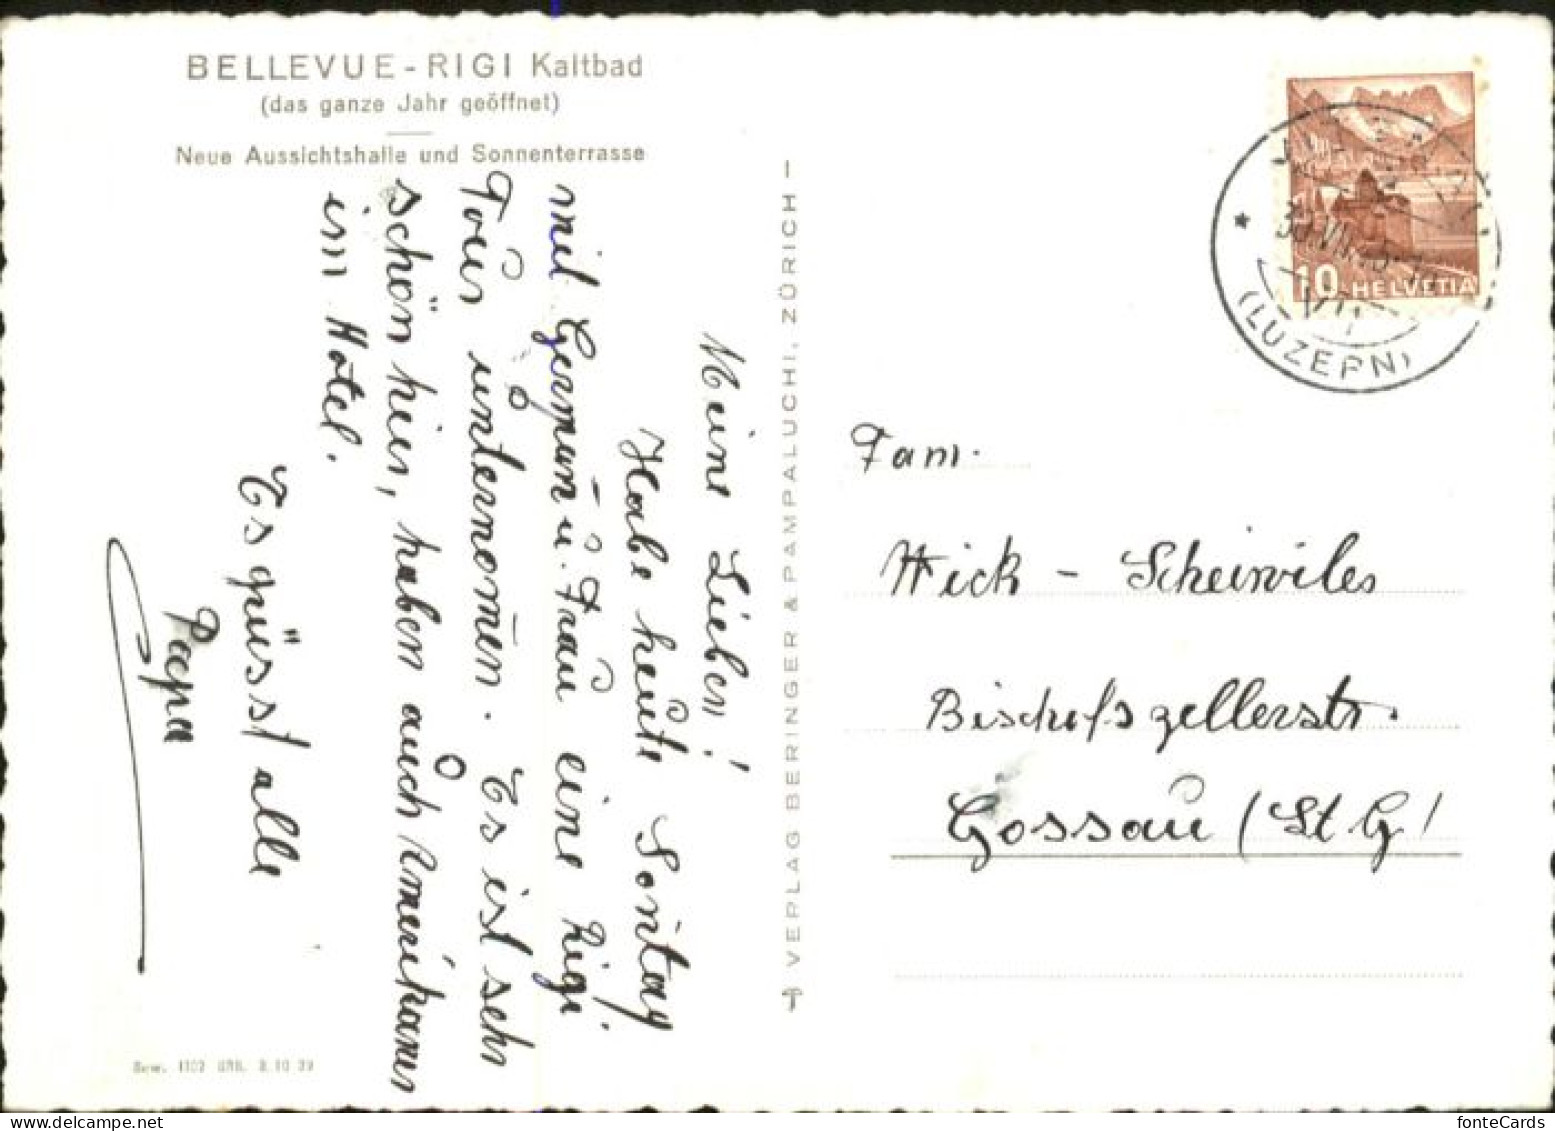 BELLEVUE - RIGI Kaltbad
(das ganze Jahr geöffnet)
Neue Aussichtshalle und Sonnenterrasse
Meine Lieben!
Habe heute Sontag
mit German u. Frau eine Rigi
Tour unternomen. Es ist sehr
schön hier, haben auch Amerikaner
im Hotel.
Es grüsst alle
Papa
VERLAG BERINGER & PAMPALUCHI, ZÜRICH
10 HELVETIA
(LUZERN)
Fam.
Wick - Scheiwiler
Bischofszellerstr.
Gossau (St G)
Bew. 1102 BRB. 3.10.39
fonteCards